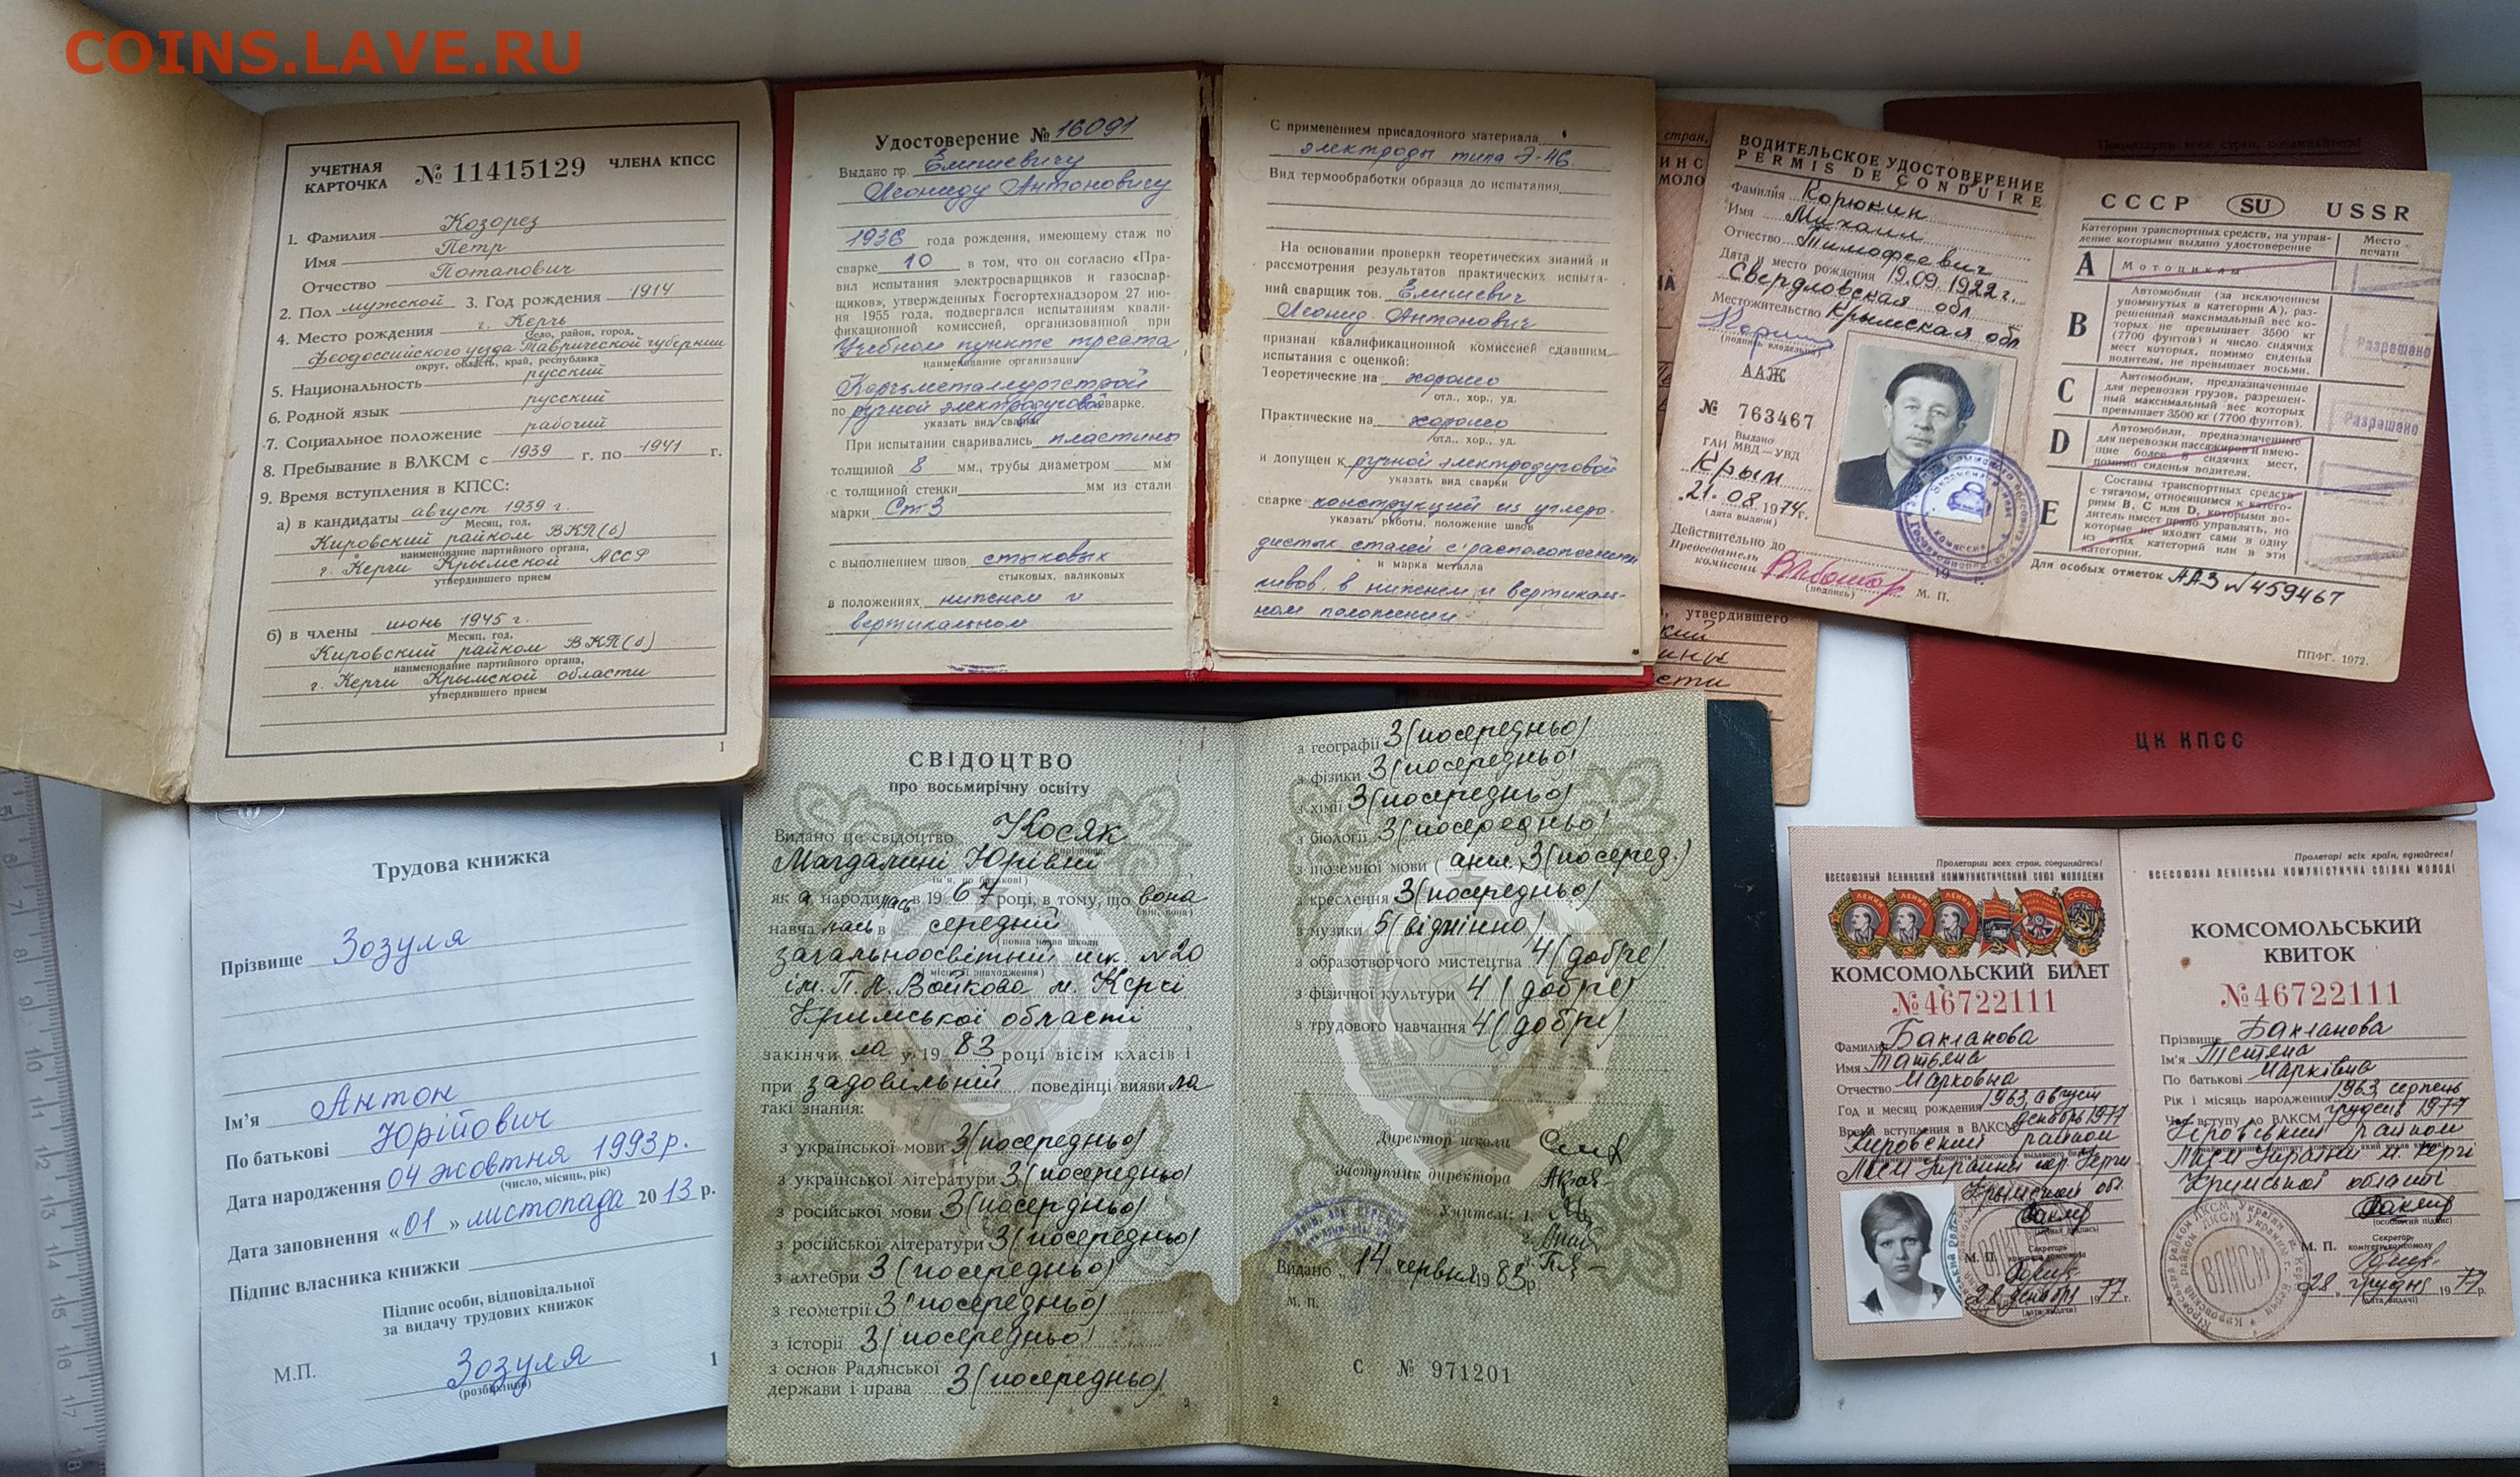 COINS.LAVE.RU
УЧЕТНАЯ КАРТОЧКА № 11415129 ЧЛЕНА КПСС
1. Фамилия Козорез
Имя Петр
Отчество Потапович
2. Пол мужской 3. Год рождения 1914
4. Место рождения г. Керчь
Село, район, город,
Феодоссийского уезда Таврической губернии
округ, область, край, республика
5. Национальность русский
6. Родной язык русский
7. Социальное положение рабочий
8. Пребывание в ВЛКСМ с 1939 г. по 1941 г.
9. Время вступления в КПСС:
а) в кандидаты август 1939 г.
Месяц, год,
Кировский райком ВКП(б)
наименование партийного органа,
г. Керчи Крымской АССР
утвердившего прием
б) в члены июнь 1945 г.
Месяц, год,
Кировский райком ВКП(б)
наименование партийного органа,
г. Керчи Крымской области
утвердившего прием
1
Удостоверение № 16091
Выдано гр. Елишевичу
Леониду Антоновичу
1936 года рождения, имеющему стаж по
сварке 10 в том, что он согласно «Пра-
вил испытания электросварщиков и газосвар-
щиков», утвержденных Госгортехнадзором 27 ию-
ня 1955 года, подвергался испытаниям квали-
фикационной комиссией, организованной при
Учебном пункте треста
наименование организации
Керчьметаллургстрой
по ручной электродуговой сварке.
указать вид сварки
При испытании сваривались пластины
толщиной 8 мм., трубы диаметром мм
с толщиной стенки мм из стали
марки Ст3
с выполнением швов стыковых
стыковых, валиковых
в положениях нижнем и
вертикальном
С применением присадочного материала
электроды типа Э-46
Вид термообработки образца до испытания
На основании проверки теоретических знаний и
рассмотрения результатов практических испыта-
ний сварщик тов. Елишевич
Леонид Антонович
признан квалификационной комиссией сдавшим
испытания с оценкой:
Теоретические на хорошо
отл., хор., уд.
Практические на хорошо
отл., хор., уд.
и допущен к ручной электродуговой
указать вид сварки
сварке конструкций из углеро-
указать работы, положение швов
дистых сталей с расположением
и марка металла
швов в нижнем и вертикаль-
ном положении
стран,
утвердившего
ВОДИТЕЛЬСКОЕ УДОСТОВЕРЕНИЕ
PERMIS DE CONDUIRE
Фамилия Корюкин
Имя Михаил
Отчество Тимофеевич
Дата и место рождения 19.09.1922 г.
Свердловская обл.
Местожительство Крымская обл
(подпись владельца)
ААЖ
№ 763467
Выдано
ГАИ МВД—УВД
Крым
21.08.1974 г.
(дата выдачи)
Действительно до
19 г.
Председатель
комиссии
(подпись) М. П.
СССР SU USSR
Категории транспортных средств, на управ-
ление которыми выдано удостоверение
Место печати
A Мотоциклы
B Автомобили (за исключением
упомянутых в категории А), раз-
решенный максимальный вес ко-
торых не превышает 3500 кг
(7700 фунтов) и число сидячих
мест которых, помимо сиденья
водителя, не превышает восьми.
Разрешено
C Автомобили, предназначенные
для перевозки грузов, разрешен-
ный максимальный вес которых
превышает 3500 кг (7700 фунтов).
Разрешено
D Автомобили, предназначенные
для перевозки пассажиров и имею-
щие более 8 сидячих мест,
помимо сиденья водителя.
E Составы транспортных средств
с тягачом, относящимся к катего-
риям В, С или D, которыми во-
дитель имеет право управлять, но
которые не входят сами в одну
из этих категорий или в эти
категории.
Для особых отметок ААЗ №459467
ППФГ. 1972.
Пролетарии всех стран, соединяйтесь!
ЦК КПСС
Трудова книжка
Прізвище Зозуля
Ім'я Антон
По батькові Юрійович
Дата народження 04 жовтня 1993 р.
(число, місяць, рік)
Дата заповнення «01» листопада 2013 р.
Підпис власника книжки
Підпис особи, відповідальної
за видачу трудових книжок
М.П. Зозуля
(розбірливо)
1
СВІДОЦТВО
про восьмирічну освіту
Видано це свідоцтво Косяк
Магдалині Юріївні
(ім'я, по батькові)
як а народилась в 1967 році, в тому, що вона
навчалась в середній
(повна назва школи
загальноосвітній шк. №20
місце знаходження)
ім. П. Л. Войкова м. Керчі
Кримської області
закінчила у 1983 році вісім класів і
при задовільній поведінці виявила
такі знання:
з української мови 3 (посередньо)
з української літератури 3 (посередньо)
з російської мови 3 (посередньо)
з російської літератури 3 (посередньо)
з алгебри 3 (посередньо)
з геометрії 3 (посередньо)
з історії 3 (посередньо)
з основ Радянської
держави і права 3 (посередньо)
2
з географії 3 (посередньо)
з фізики 3 (посередньо)
з хімії 3 (посередньо)
з біології 3 (посередньо)
з іноземної мови (англ.) 3 (посеред.)
з креслення 3 (посередньо)
з музики 5 (відмінно)
з образотворчого мистецтва 4 (добре)
з фізичної культури 4 (добре)
з трудового навчання 4 (добре)
Директор школи
Заступник директора
Учителі: 1.
Видано „14" червня 1983 р.
М. П.
С № 971201
2
Пролетарии всех стран, соединяйтесь!
ВСЕСОЮЗНЫЙ ЛЕНИНСКИЙ КОММУНИСТИЧЕСКИЙ СОЮЗ МОЛОДЕЖИ
КОМСОМОЛЬСКИЙ БИЛЕТ
№46722111
Фамилия Бакланова
Имя Татьяна
Отчество Марковна
Год и месяц рождения 1963, август
Время вступления в ВЛКСМ декабрь 1977
Кировский райком
ЛКСМ Украины гор. Керчи
Крымской обл.
М. П. Секретарь
комитета комсомола
28 декабря 1977 г.
(дата выдачи)
Пролетарі всіх країн, єднайтеся!
ВСЕСОЮЗНА ЛЕНІНСЬКА КОМУНІСТИЧНА СПІЛКА МОЛОДІ
КОМСОМОЛЬСЬКИЙ
КВИТОК
№46722111
Прізвище Бакланова
Ім'я Тетяна
По батькові Марківна
Рік і місяць народження 1963, серпень
Час вступу до ВЛКСМ грудень 1977
Кіровський райком
ЛКСМ України м. Керчі
Кримської області
(особистий підпис)
М. П. Секретар
комітету комсомолу
ВЛКСМ
28 грудня 1977 р.
(дата видачі)